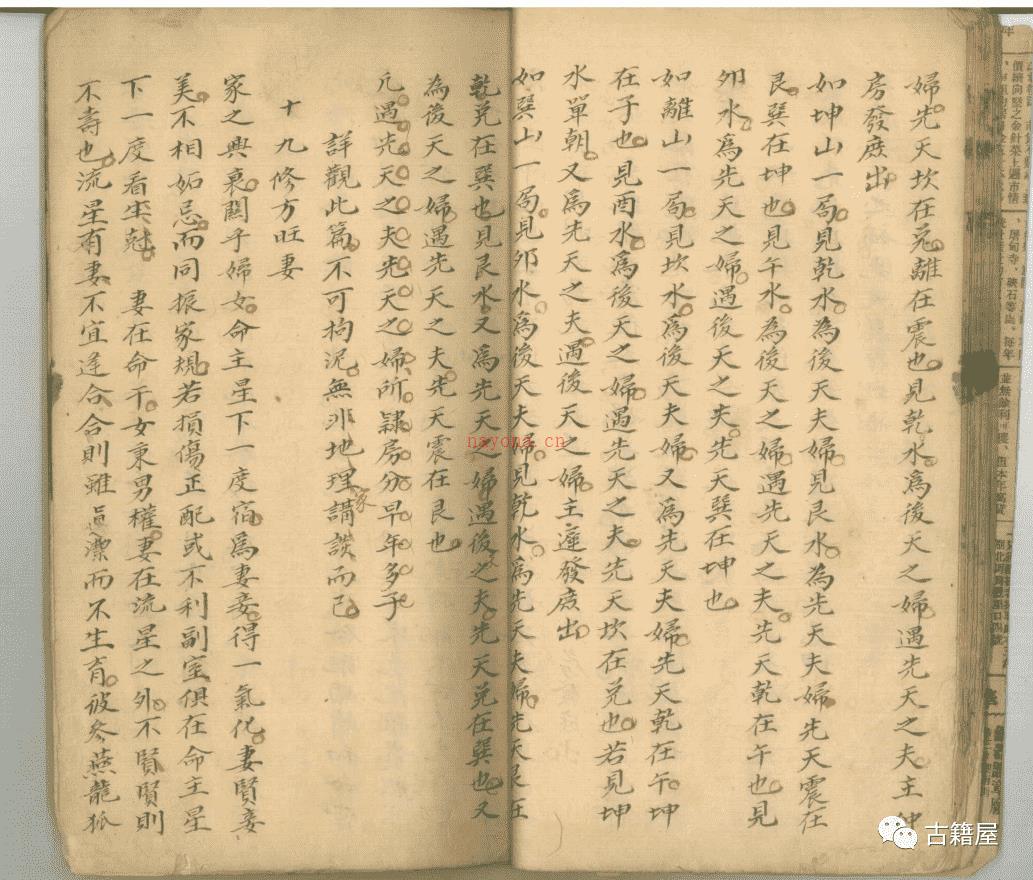 婦先天坎在兌離在震也見乾水為後天之婦遇先天之夫主仲
房發庶出
如坤山一局見乾水為後天夫婦見艮水為先天夫婦先天震在
艮巽在坤也見午水為後天之婦遇先天之夫先天乾在午也見
卯水爲先天之婦遇後天之夫先天巽在坤也
如離山一局見坎水為後天夫婦又爲先天夫婦先天乾在午坤
在子也見酉水爲後天之婦遇先天之夫先天坎在兌也若見坤
水單朝又爲先天之夫遇後天之婦主遲發庶出
如巽山一局見卯水為後天夫婦見乾水爲先天夫婦先天艮在
乾兌在巽也見艮水又爲先天之婦遇後之夫先天兌在巽也又
為後天之婦遇先天之夫先天震在艮也
凢遇先天之夫先天之婦所隸房分早年多子
詳觀此篇不可拘泥無非地理家講談而已
十九修方旺妻
家之興衰關乎婦女命主星下一度宿爲妻妾得一氣化妻賢妾
美不相妬忌而同振家規若損傷正配或不利副室俱在命主星
下一度看坐尅 妻在命干女秉男權妻在流星之外不賢賢則
不壽也流星有妻不宜逢合合則雖貞潔而不生育彼參燕龍狐
nayona.cn
古籍屋